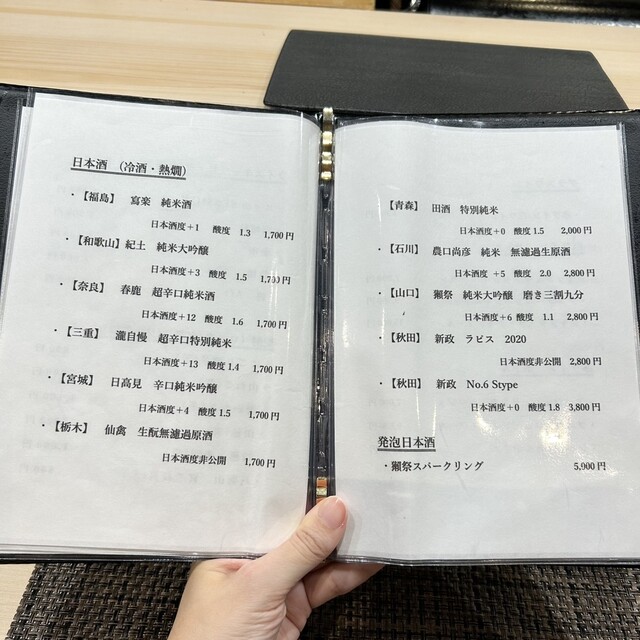 日本酒 (冷酒・熱燗)
・【福島】 寫楽 純米酒
日本酒度+1 酸度 1.3 1,700円
・【和歌山】紀土 純米大吟醸
日本酒度+3 酸度 1.5 1,700円
・【奈良】 春鹿 超辛口純米酒
日本酒度+12 酸度 1.6 1,700円
・【三重】 瀧自慢 超辛口特別純米
日本酒度+13 酸度 1.4 1,700円
・【宮城】 日高見 辛口純米吟醸
日本酒度+4 酸度 1.5 1,700円
・【栃木】 仙禽 生酛無濾過原酒
日本酒度非公開 1,700円
・【青森】 田酒 特別純米
日本酒度+0 酸度 1.5 2,000円
・【石川】 農口尚彦 純米 無濾過生原酒
日本酒度 +5 酸度 2.0 2,800円
・【山口】 獺祭 純米大吟醸 磨き三割九分
日本酒度+6 酸度 1.1 2,800円
・【秋田】 新政 ラピス 2020
日本酒度非公開 2,800円
・【秋田】 新政 No.6 Stype
日本酒度+0 酸度 1.8 3,800円
発泡日本酒
・獺祭スパークリング 5,900円